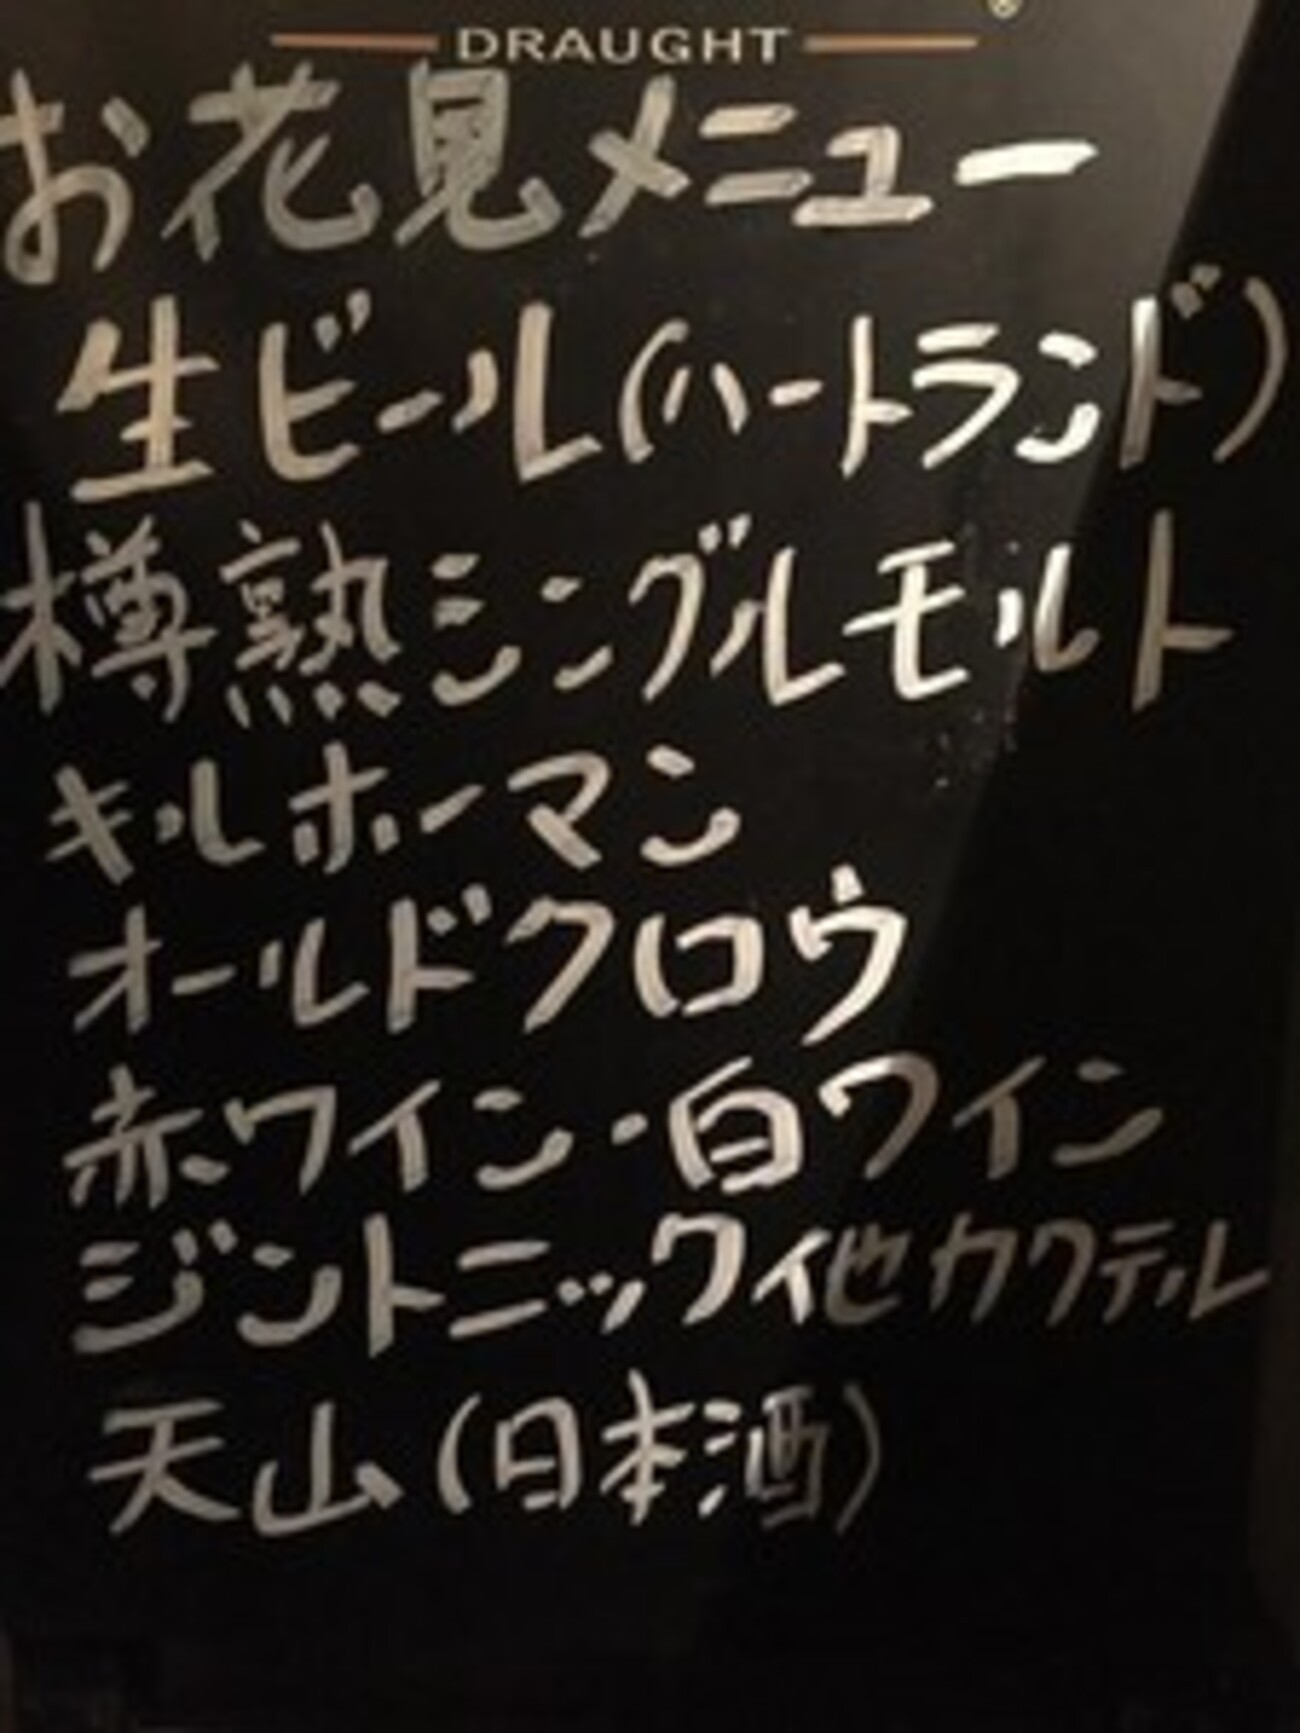 DRAUGHT
お花見メニュー
生ビール(ハートランド)
樽熟シングルモルト
キルホーマン
オールドクロウ
赤ワイン・白ワイン
ジントニック他カクテル
天山(日本酒)